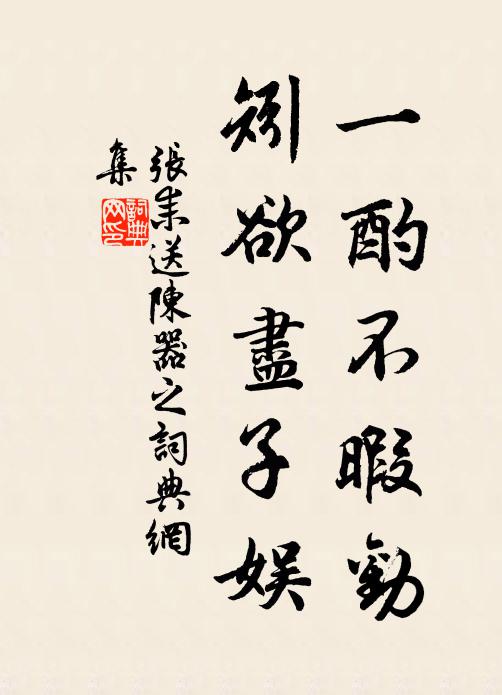 一酌不暇勸
矧欲盡子娛
張耒送陳器之詞典網
集
詞典
网印